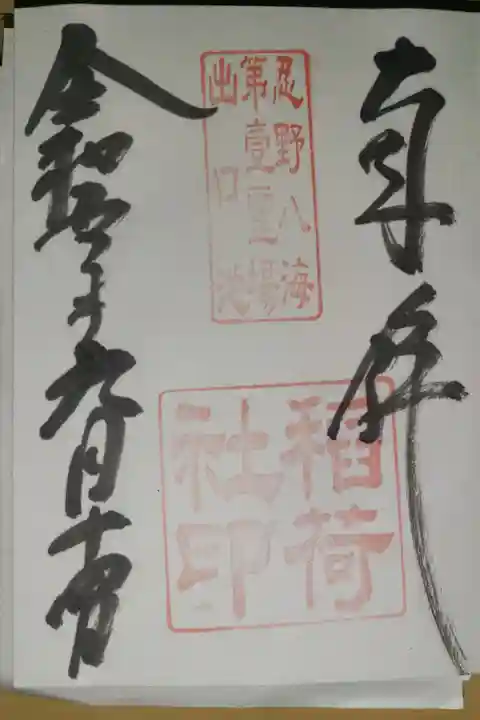 奉拝
忍野八海
第壹霊場
出口池
稲荷
社印
令和四年九月十